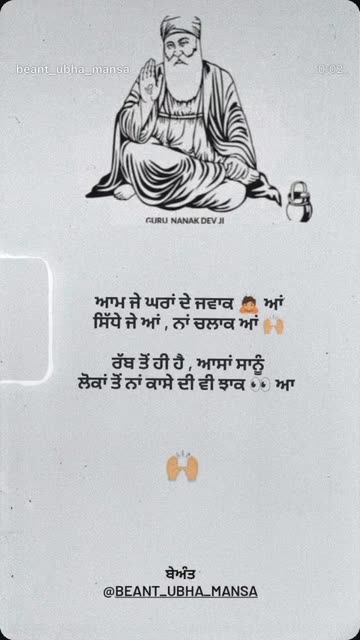 beant_ubha_mansa
GURU NANAK DEV JI
ਆਮ ਜੇ ਘਰਾਂ ਦੇ ਜਵਾਕ 🙇🏽 ਆਂ
ਸਿੱਧੇ ਜੇ ਆਂ , ਨਾਂ ਚਲਾਕ ਆਂ 🙌🏽
ਰੱਬ ਤੋਂ ਹੀ ਹੈ , ਆਸਾਂ ਸਾਨੂੰ
ਲੋਕਾਂ ਤੋਂ ਨਾਂ ਕਾਸੇ ਦੀ ਵੀ ਝਾਕ 👀 ਆ
🙌🏽
ਬੇਅੰਤ
@BEANT_UBHA_MANSA